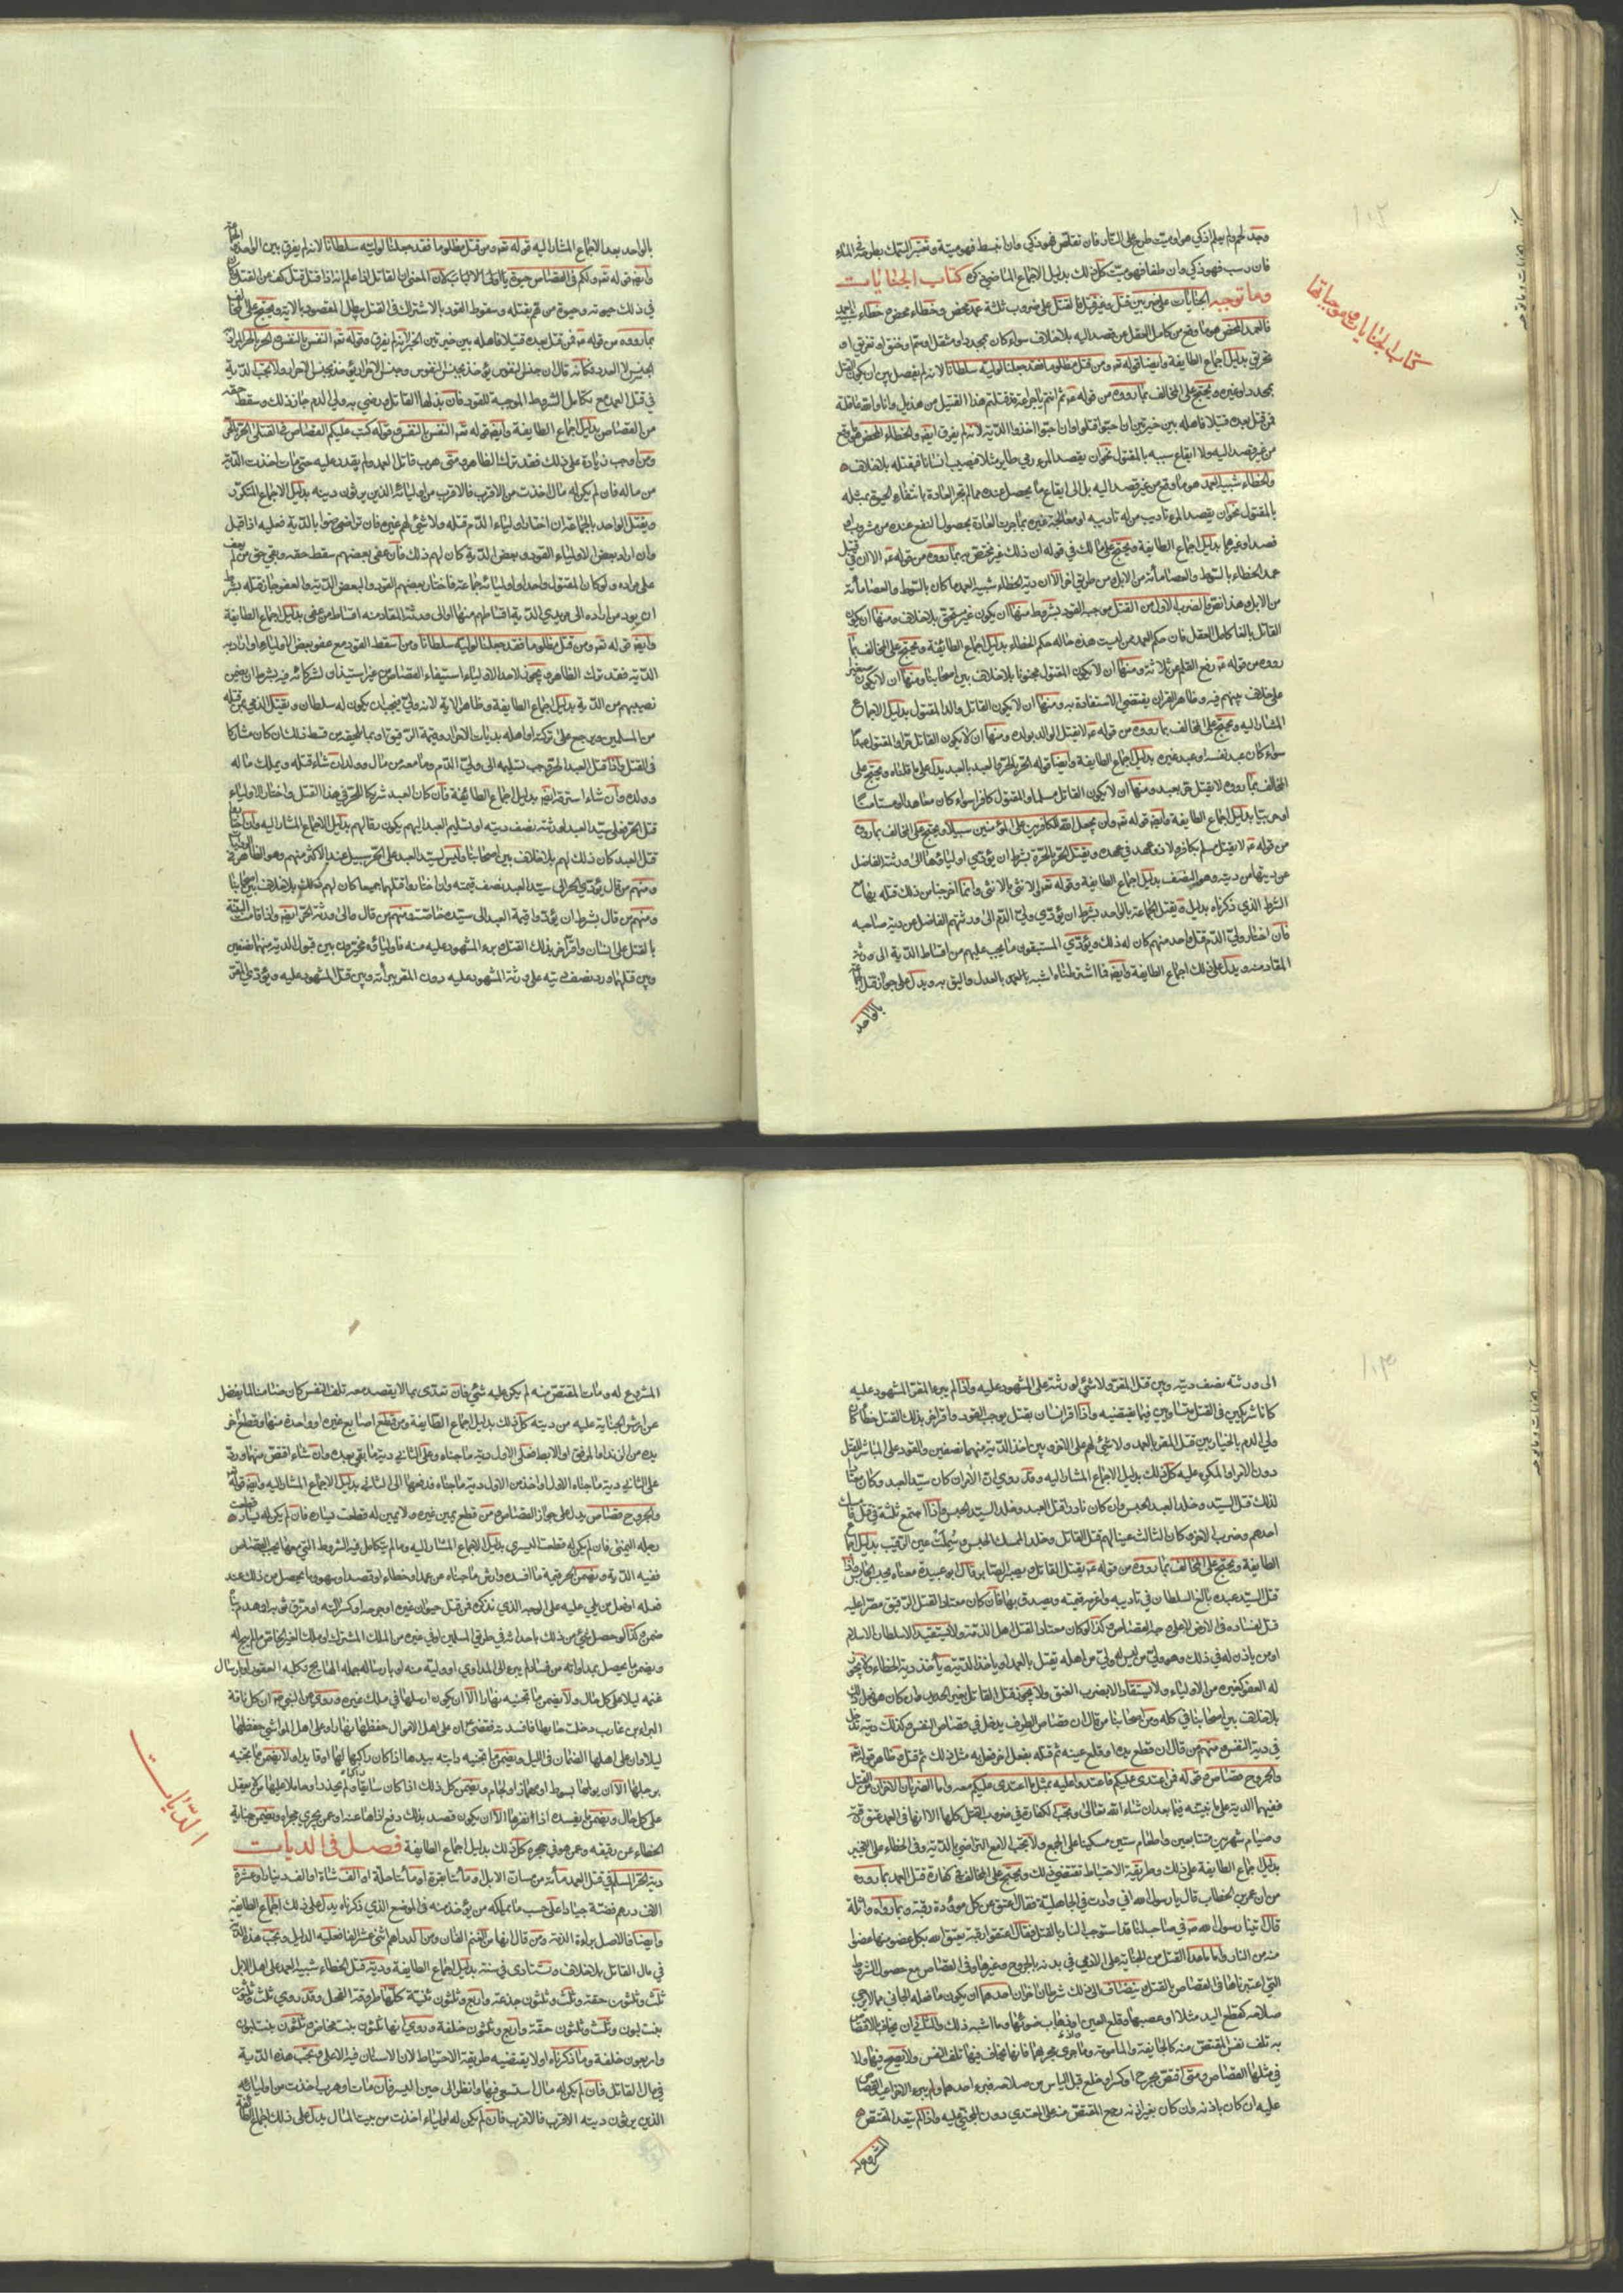 وجد لحم ولم يعلم اذكي هو ام ميت طرح على النار فان تقلص فهو ذكي وان انبسط فهو ميتة ويعتبر السمك بطرحه في الماء
فان رسب فهو ذكي وان طفا فهو ميت كل ذلك بدليل الاجماع الماضي ذكره كتاب الجنايات
وما توجبه الجنايات على ضربين قتل وغير قتل فالقتل على ضروب ثلثة عمد محض وخطاء محض وخطاء شبيه العمد
فالعمد المحض هو ما وقع من كامل العقل عن قصد اليه بلا خلاف سواء كان بمحدد او مثقل او سم او خنق او تغريق او
تحريق بدليل اجماع الطايفة وايضا قوله تعه ومن قتل مظلوما فقد جعلنا لوليه سلطانا لانه لم يفصل بين ان يكون القتل
بمحدد او غيره ويحتج على المخالف بما رووه من قوله عه ثم انتم يا خزاعة قد قتلتم هذا القتيل من هذيل وانا والله عاقلة
فمن قتل بعده قتيلا فاهله بين خيرتين ان احبوا قتلوا وان احبوا اخذوا الدية لانه لم يفرق ايضه والخطاء المحض هو ما وقع
من غير قصد اليه ولا ايقاع سببه بالمقتول نحو ان يقصد المرء رمي طاير مثلا فيصيب انسانا فيقتله بلا خلاف
والخطاء شبيه العمد هو ما وقع من غير قصد اليه بل الى ايقاع ما يحصل عنده مما لم تجر العادة بانتفاء الحيوة بمثله
بالمقتول نحو ان يقصد المرء تاديب من له تاديبه او معالجة غيره بما جرت العادة بحصول النفع عنده من مشروب او
فصد او غيرهما بدليل اجماع الطايفة ويحتج على مالك في قوله ان ذلك غير مختص به بما رووه من قوله عه الا ان في قتيل
عمد الخطاء بالسوط والعصا مأئة من الابل ومن طريق اخر الا ان دية الخطاء شبيه العمد ما كان بالسوط والعصا مأئة
من الابل وهذا نص والضرب الاول من القتل موجب القود بشروط منها ان يكون غير مستحق بلا خلاف ومنها ان يكون
القاتل بالغا كامل العقل فان حكم العمد ممن ليست هذه حاله حكم الخطاء بدليل اجماع الطايفة ويحتج على المخالف بما
رووه من قوله عه رفع القلم عن ثلاثة ومنها ان لا يكون المقتول مجنونا بلا خلاف بين اصحابنا ومنها ان لا يكون صغيرا
على خلاف بينهم فيه وظاهر القران يقتضي الاستقادة به ومنها ان لا يكون القاتل والد المقتول بدليل الاجماع
المشار اليه ويحتج على المخالف بما رووه من قوله عه لا يقتل الوالد بولده ومنها ان لا يكون القاتل حرا والمقتول عبدا
سواء كان عبد نفسه او عبد غيره بدليل اجماع الطايفة وايضا قوله الحر بالحر والعبد بالعبد يدل على ما قلناه ويحتج على
المخالف بما رووه لا يقتل حر بعبد ومنها ان لا يكون القاتل مسلما والمقتول كافرا سواء كان معاهدا او مستامنا
او حربيا بدليل اجماع الطايفة وايضه قوله تعه ولن يجعل الله للكافرين على المؤمنين سبيلا ويحتج على المخالف بما رووه
من قوله عه لا يقتل مسلم بكافر ولا ذو عهد في عهده ويقتل الحر بالحرة بشرط ان يؤدي اولياؤها الى ورثته الفاضل
عن ديتها من ديته وهو النصف بدليل اجماع الطايفة وقوله تعه والانثى بالانثى وانما اخرجنا من ذلك قتله بها مع
الشرط الذي ذكرناه بدليل ويقتل الجماعة بالواحد بشرط ان يؤدي ولي الدم الى ورثتهم الفاضل عن دية صاحبه
فان اختار ولي الدم قتل واحد منهم كان له ذلك ويؤدي المستبقون ما يجب عليهم من اقساط الدية الى ورثة
المقاد منه ويدل على ذلك اجماع الطايفة وايضه فما اشترطناه اشبه بالعدل واليق به ويدل على جواز قتل الجماعة
بالواحد
كتاب الجنايات وموجباتها
بالواحد بعد الاجماع المشار اليه قوله تعه ومن قتل مظلوما فقد جعلنا لوليه سلطانا لانه لم يفرق بين الواحد والجماعة
وايضه قوله تعه ولكم في القصاص حيوة يا اولى الالباب لان المعنى ان القاتل اذا علم انه اذا قتل قتل كف عن القتل وكان
في ذلك حيوته وحيوة من هم بقتله وسقوط القود بالاشتراك في القتل يبطل المقصود بالاية ويحتج على المخالف
بما رووه من قوله عه فمن قتل بعده قتيلا فاهله بين خيرتين الخبر لانه لم يفرق وقوله تعه النفس بالنفس والحر بالحر المراد به
الجنس لا العدد فكأنه قال ان جنس النفوس يؤخذ بجنس النفوس وجنس الاحرار يؤخذ بجنس الاحرار ولا تجب الدية
في قتل العمد مع تكامل الشروط الموجبة للقود فان بذلها القاتل ورضي به ولي الدم جاز ذلك وسقط حقه
من القصاص بدليل اجماع الطايفة وايضه قوله تعه النفس بالنفس وقوله كتب عليكم القصاص في القتلى الحر بالحر
ومن اوجب زيادة على ذلك فقد ترك الظاهر ومتى هرب قاتل العمد ولم يقدر عليه حتى مات اخذت الدية
من ماله فان لم يكن له مال اخذت من الاقرب فالاقرب من اوليائه الذين يرثون ديته بدليل الاجماع المتكرر
ويقتل الواحد بالجماعة ان اختار اولياء الدم قتله ولا شئ لهم غيره فان تراضوا بالدية فعليه اذا قبل
وان اراد بعض الاولياء القود وبعض الدية كان لهم ذلك فان عفى بعضهم سقط حقه وبقي حق من لم يعف
على مراده ولو كان المقتول واحدا واولياؤه جماعة فاختار بعضهم القود والبعض الدية والعفو جاز قتله بشرط
ان يؤد من اراده الى مريدي الدية اقساطهم منها او الى ورثة المقاد منه اقساط من عفى بدليل اجماع الطايفة
وايضه قوله تعه ومن قتل مظلوما فقد جعلنا لوليه سلطانا ومن اسقط القود مع عفو بعض الاولياء او ارادته
الدية فقد ترك الظاهر ويجوز لاحد الاولياء استيفاء القصاص من غير استيذان لشركائه فيه بشرط ان يضمن
نصيبهم من الدية بدليل اجماع الطايفة وظاهر الاية لانه ولي فيجب ان يكون له سلطان ويقتل الذمي بمن قتله
من المسلمين ويرجع على تركته او اهله بديات الاحرار وقيمة الرقيق او بما يلحقه من قسط ذلك ان كان مشاركا
في القتل واذا قتل العبد الحر وجب تسليمه الى ولي الدم وما معه من مال وولد ان شاء قتله وتملك ماله
وولده وان شاء استرقه ايضه بدليل اجماع الطايفة فان كان العبد شريكا للحر في هذا القتل واختار الاولياء
قتل الحر فعلى سيد العبد لورثته نصف ديته او تسليم العبد اليهم يكون رقا لهم بدليل الاجماع المشار اليه وان اختاروا
قتل العبد كان ذلك لهم بلا خلاف بين اصحابنا وليس لسيد العبد على الحر سبيل عند الاكثر منهم وهو الظاهر
ومنهم من قال يؤدي الحر الى سيد العبد نصف قيمته وان اختاروا قتلهما جميعا كان لهم ذلك بلا خلاف بين اصحابنا
ومنهم من قال بشرط ان يؤدوا قيمة العبد الى سيده خاصة ومنهم من قال والى ورثة الحر ايضه واذا قامت البينة
بالقتل على انسان واقر آخر بذلك القتل وبرء المشهود عليه منه فاولياؤه مخيرون بين قبول الدية منهما نصفين
وبين قتلهما ورد نصف ديته على ورثة المشهود عليه دون المقر ببرأته وبين قتل المشهود عليه ويؤدي المقر
الى ورثته نصف ديته وبين قتل المقر ولا شئ لورثته على المشهود عليه واذا لم يبرء المقر المشهود عليه
كانا شريكين في القتل متساويين فيما يقتضيه واذا اقر انسان بقتل يوجب القود واقر اخر بذلك القتل خطأ كان
ولي الدم بالخيار بين قتل المقر بالعمد ولا شئ لهم على الاخر وبين اخذ الدية منهما نصفين والقود على المباشر للقتل
دون الامر او المكره عليه كل ذلك بدليل الاجماع المشار اليه وقد روي ان الامر ان كان سيد العبد وكان معتادا
لذلك قتل السيد وخلد العبد الحبس وان كان نادرا قتل العبد وخلد السيد الحبس واذا اجتمع ثلثة في قتل فامسك
احدهم وضرب الاخر وكان الثالث عينا لهم قتل القاتل وخلد الممسك الحبس وسملت عين الرقيب بدليل اجماع
الطايفة ويحتج على المخالف بما رووه من قوله عه يقتل القاتل ويصبر الصابر قال ابو عبيدة معناه يحبس الحابس واذا
قتل السيد عبده بالغ السلطان في تاديبه واغرمه قيمته وتصدق بها فان كان معتادا لقتل الرقيق مصرا عليه
قتل لفساده في الارض لا على وجه القصاص وكذا لو كان معتادا لقتل اهل الذمة ولا يستقيد الا سلطان الاسلام
او من ياذن له في ذلك وهو ولي من ليس له ولي من اهله يقتل بالعمد او ياخذ الدية ويأخذ دية الخطاء ولا يجوز
له العفو كغيره من الاولياء ولا يستقاد الا بضرب العنق ولا يجوز قتل القاتل بغير الحديد وان كان هو فعل ذلك
بلا خلاف بين اصحابنا في كله ومن اصحابنا من قال ان قصاص الطرف يدخل في قصاص النفس وكذلك ديته تدخل
في دية النفس ومنهم من قال ان قطع يده او قلع عينه ثم قتله بفعل اخر فعل به مثل ذلك ثم قتل وظاهر قوله تعه
والجروح قصاص وقوله فمن اعتدى عليكم فاعتدوا عليه بمثل ما اعتدى عليكم معه واما الضربان الاخران من القتل
ففيهما الدية على ما نبينه فيما بعد ان شاء الله تعالى وتجب الكفارة في ضروب القتل كلها الا انها في العمد عتق رقبة
وصيام شهرين متتابعين واطعام ستين مسكينا على الجمع ولا تجب الا مع التراضي بالدية وفي الخطاء على التخيير
بدليل اجماع الطايفة على ذلك وطريقة الاحتياط تقتضي ذلك ويحتج على المخالف في كفارة قتل العمد بما رووه
من ان عمر بن الخطاب قال يا رسول الله اني وادت في الجاهلية فقال اعتق عن كل موؤدة رقبة وبما رواه واثلة
قال اتينا رسول الله صه في صاحب لنا قد استوجب النار بالقتل فقال اعتقوا رقبة يعتق الله بكل عضو منها عضوا
منه من النار واما ما عدا القتل من الجناية على الادمي في بدنه بالجروح وغيرها وفي القصاص مع حصول الشروط
التي اعتبرناها في القصاص بالقتل ويضاف الى ذلك شرطان اخران احدهما ان يكون ما فعله الجاني مما لا يرجى
صلاحه كقطع اليد مثلا او عصبها وقلع العين او ذهاب ضوئها وما اشبه ذلك والثاني ان يخاف بالاقتصاص
به تلف نفس المقتص منه كالجايفة والمامومة وما جرى مجراهما فانها يخاف فيها تلف النفس ولا يصح فيها ولا
في مثلها القصاص ومتى اقتص بجرح او كسر او خلع قبل الياس من صلاحه فبرء احدهما ولم يبرء الاخر اعيد القصاص
عليه ان كان باذنه وان كان بغير اذنه رجع المقتص منه على المعتدي دون المجنى عليه واذا لم يتعد المقتص
المشروع له
المشروع له ومات المقتص منه لم يكن عليه شئ فان تعدى بما لا يقصد معه تلف النفس كان ضامنا لما يفضل
عن ارش الجناية عليه من ديته كل ذلك بدليل اجماع الطايفة ومن قطع اصابع غيره او واحدة منها وقطع آخر
يده من الزند او المرفق او الابط فعلى الاول دية ما جناه وعلى الثاني دية ما بقي بعده وان شاء اقتص منهما ورد
على الثاني دية ما جناه الاول واخذ من الاول دية ما جناه فدفعها الى الثاني بدليل الاجماع المشار اليه وايضه قوله تعه
والجروح قصاص يدل على جواز القصاص ومن قطع يمين غيره ولا يمين له قطعت يساره فان لم يكن له يسار قطعت
رجله اليمنى فان لم يكن له قطعت اليسرى بدليل الاجماع المشار اليه وما لم يتكامل فيه الشروط التي معها يجب القصاص
ففيه الدية ويضمن الحر قيمة ما افسده وارش ما جناه عن عمد او خطاء او قصد او سهو وما يحصل من ذلك عند
فعله او فعل من يلي عليه على الوجه الذي نذكره فمن قتل حيوان غيره او جرحه او كسر الته او مزق ثوبه او هدم بناءه
ضمن وكذا لو حصل شئ من ذلك باحداثه في طريق المسلمين او في غيره من الملك المشترك او ملك الغير الخاص ما لم يبح له
ويضمن ما يحصل بمداواته من فساد لم يبرء الى المداوي او وليه منه او بارساله جمله الهايج وكلبه العقور او ارسال
غنمه ليلا على كل حال ولا يضمن ما تجنيه نهارا الا ان يكون ارسلها في ملك غيره وروي عن النبي صه ان كل ناقة
البراء بن عازب دخلت حايطا فافسدته فقضى عه ان على اهل الاموال حفظها نهارا وعلى اهل المواشي حفظها
ليلا وان على اهلها الضمان في الليل ويضمن ما تجنيه دابته بيدها اذا كان راكبها لها او قايدا ولا يضمن ما تجنيه
برجلها الا ان يولمها بسوط او مهماز او لجام ويضمن كل ذلك اذا كان سايقا ولم يحذر او حاملا عليها من لا يعقل
على كل حال ويضمن ما تفسده اذا انفرها الا ان يكون قصد بذلك دفع اذاها عنه او عمن يجري مجراه ويضمن جناية
الخطاء عن رقيقه وعمن هو في حجره كل ذلك بدليل اجماع الطايفة فصل في الديات
دية الحر المسلم في قتل العمد مأئة من مسان الابل او مأئتا بقرة او مأئتا حلة او الف شاة او الف دينار او عشرة
الاف درهم فضة جيادا على حسب ما يملكه من يؤخذ منه في الموضع الذي ذكرناه يدل على ذلك اجماع الطايفة
وايضا فالاصل براءة الذمة ومن قال انها من الغنم الفان ومن الدراهم اثنى عشر الفا فعليه الدليل وتجب هذه الدية
في مال القاتل بلا خلاف وتستادى في سنة بدليل اجماع الطايفة ودية قتل الخطاء شبيه العمد على اهل الابل
ثلث وثلثون حقة وثلث وثلثون جذعة واربع وثلثون ثنية كلها طروقة الفحل وقد روي ثلث وثلثون
بنت لبون وثلث وثلثون حقة واربع وثلثون خلفة وروي انها ثلثون بنت مخاض وثلثون بنت لبون
واربعون خلفة وما ذكرناه اولا يقتضيه طريقة الاحتياط لان الاسنان فيه الاعلى وتجب هذه الدية
في مال القاتل فان لم يكن له مال استسعى فيها وانظر الى حين اليسر فان مات او هرب اخذت من اوليائه
الذين يرثون ديته الاقرب فالاقرب فان لم يكن له اولياء اخذت من بيت المال يدل على ذلك اجماع الطايفة
الديات